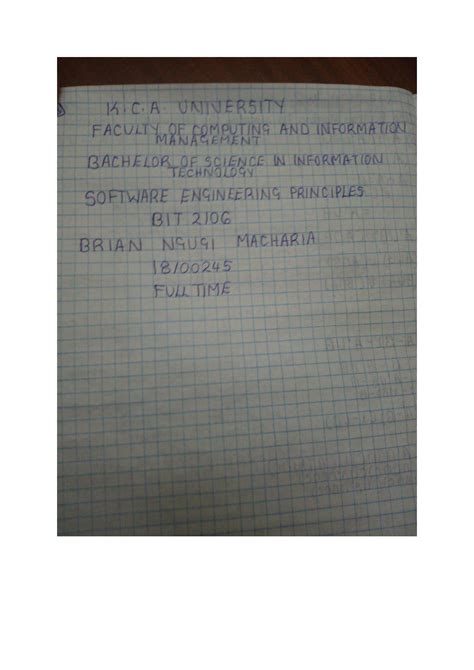 K.C.A. UNIVERSITY
FACULTY OF COMPUTING AND INFORMATION
MANAGEMENT
BACHELOR OF SCIENCE IN INFORMATION
TECHNOLOGY
SOFTWARE ENGINEERING PRINCIPLES
BIT 2106
BRIAN NGUGI MACHARIA
18/00245
FULL TIME